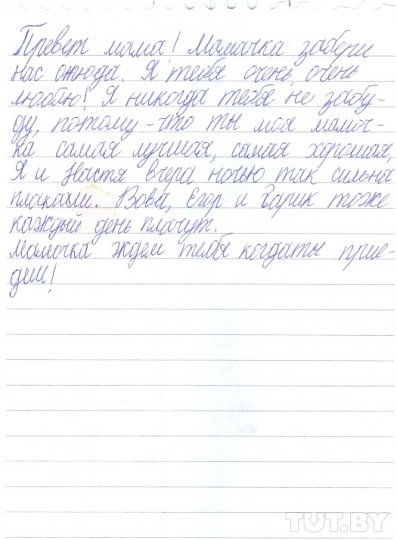 Превет мама! Мамачка забери
нас отюда. Я тебя очень, очень
люблю! Я никогда тебя не забу-
ду, потому-что ты моя мамоч-
ка самая лучшая, самая хорошая,
Я и Настя вчера ночью так сильна
плакали. Вова, Егор и Гарик тоже
каждый день плачут.
Мамачка ждем тебя когдаты прие-
деш!
TUT.BY